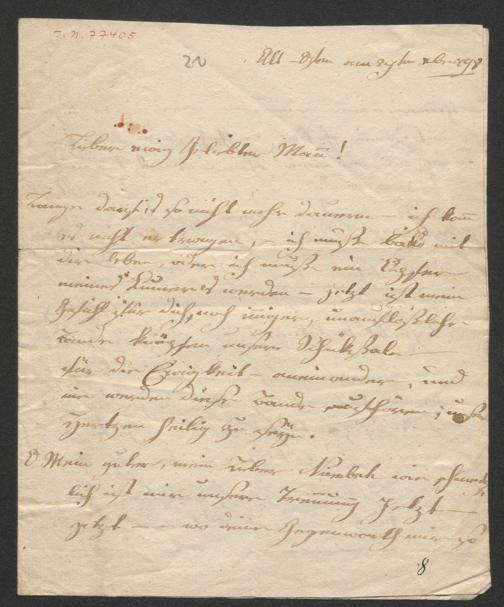 I.N. 77405
20
Alt-Ofen am
Lieber ewig geliebter Mañ!
Lange darf es so nicht mehr dauern – ich kañ
es nicht ertragen, – ich muß bald mit
dir leben, oder ich muß ein Opfer
meines Kumers werden – jetzt ist mein
Gefühl für dich, noch iniger, unauflößliche
Bande knüpfen unsere Schicksale
für die Ewigkeit – aneinander, und
nie werden diese Bande aufhören,
Hertzen heilig zu seyn.
O Mein guter, mein lieber wie
lich ist mir unsere Treñung jetzt –
jetzt – – wo deine Gegenwarth mir so
8